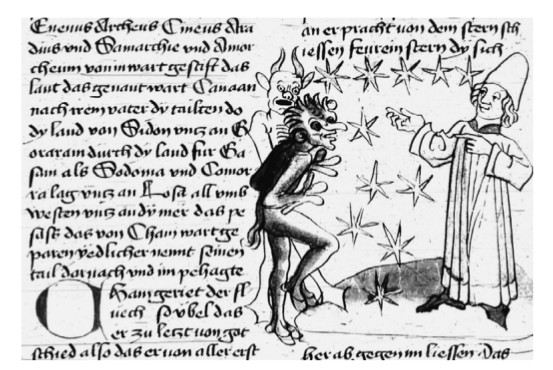 Euenus Archeus Cineus Ara
dius vnd Samarchie vnd Amor
cheum von in wart gestift das
laut das genant wart Canaan
nach irem vater dy tailten do
dy land von Sidon vntz an G
oraram durch dy land fur Ga
sam als Sodoma vnd Gomor
ra lag vntz an Losa all vmb
westen vntz an dy mer das pe
sast das von Cham wart ge
paren yedlicher nennt seinen
tail dornach vnd im pehagte
Cham geriet der fl
uech so vbel das
er zu letzt von got
schied also das er von aller erst
an er pracht von dem stern sch
iessen feurein stern dy sich
her ab gegen im liessen Das